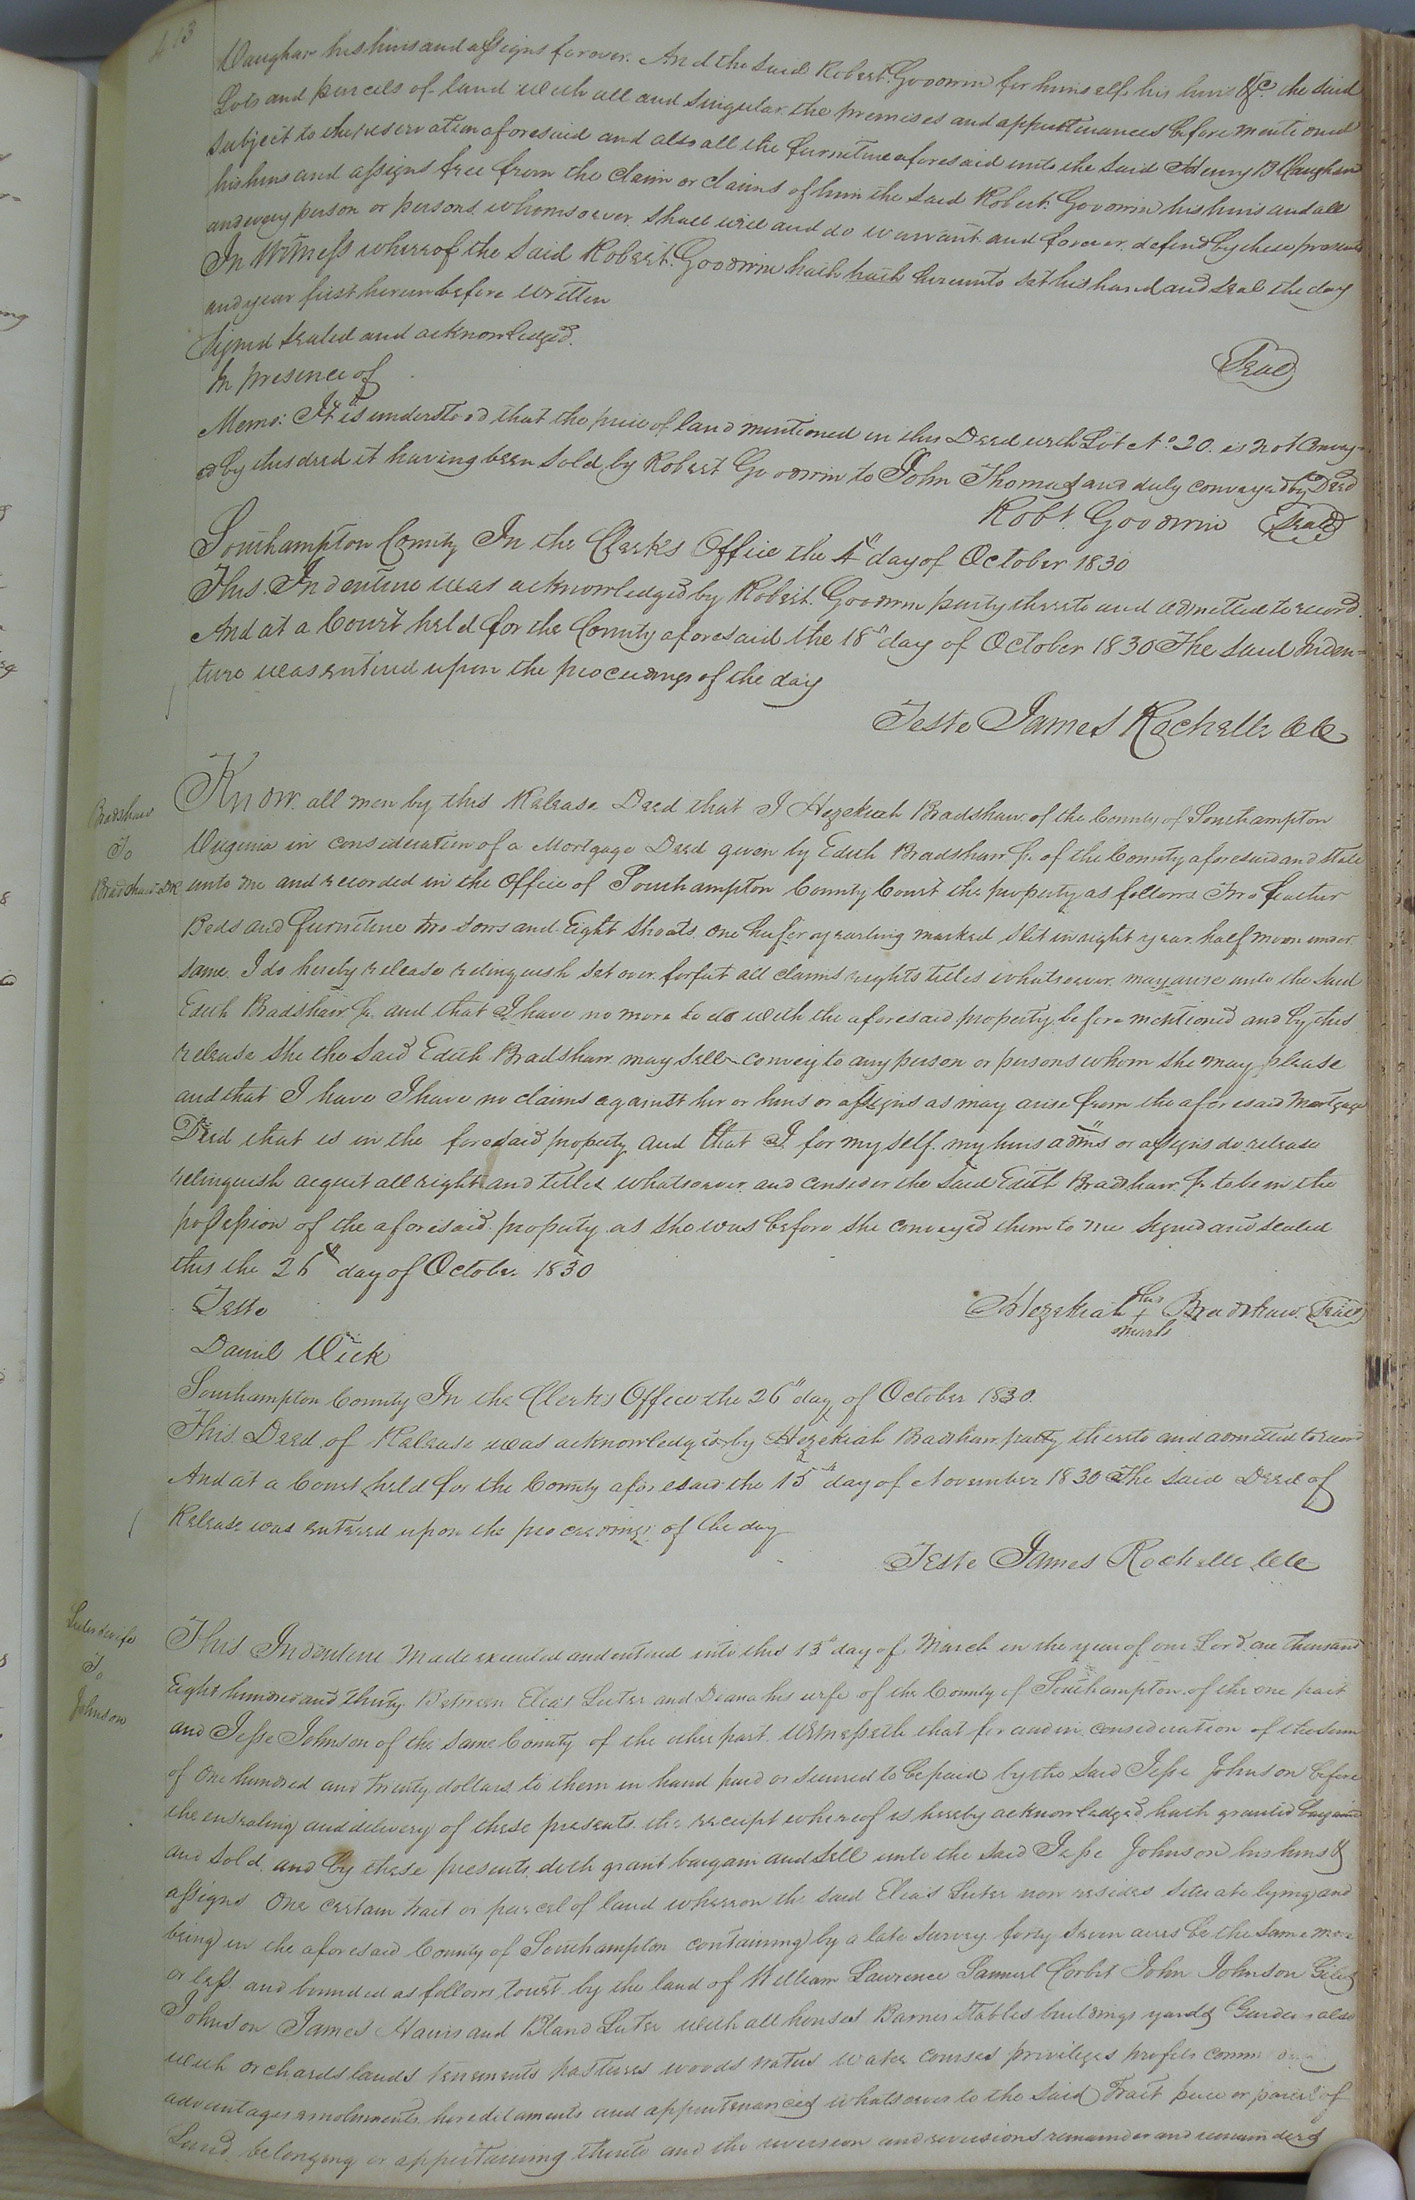 413
Vaughan his heirs and assigns forever. And the said Robert Goodwin for himself his heirs &c. the said
Lots and parcels of land with all and singular the premises and appurtenances before mentioned
subject to the reservation aforesaid and also all the furniture aforesaid unto the said Henry B Vaughan
his heirs and assigns free from the claim or claims of him the said Robert Goodwin his heirs and all
and every person or persons whomsoever shall will and do warrant and forever defend by these presents
In Witness whereof the said Robert Goodwin hath hath hereunto set his hand and seal the day
and year first herein before written
Signed sealed and acknowledged.
In presence of
Seal
Memo: It is understood that the piece of land mentioned in this Deed with Lot No. 20. is not convey-
ed by this deed it having been sold by Robert Goodwin to John Thomas and duly conveyed by Deed
Robt. Goodwin Seal
Southampton County In the Clerks Office the 4th day of October 1830
This Indenture was acknowledged by Robert Goodwin party thereto and admitted to record.
And at a Court held for the County aforesaid the 18th day of October 1830 The said Inden-
ture was entered upon the proceedings of the day
Teste James Rochelle CC
Bradshaw
To
Bradshaw
Know all men by this Release Deed that I Hezekiah Bradshaw of the County of Southampton
Virginia in consideration of a Mortgage Deed given by Edith Bradshaw Jr. of the County aforesaid and State
unto me and recorded in the Office of Southampton County Court the property as follows Two feather
Beds and furniture two sows and Eight Shoats one heifer yearling marked slit in right year half moon under
same. I do hereby release relinquish set over forfeit all claims rights titles whatsoever may arise unto the said
Edith Bradshaw Jr. and that I have no more to do with the aforesaid property before mentioned and by this
release she the said Edith Bradshaw may sell convey to any person or persons whom she may please
and that I have I have no claims against her or heirs or assigns as may arise from the aforesaid Mortgage
Deed that is in the foresaid property and that I for myself my heirs adms or assigns do release
relinquish acquit all right and titles whatsoever and consider the said Edith Bradshaw Jr. to be in the
possession of the aforesaid property as she was before she conveyed them to me Signed and sealed
this the 26th day of October 1830
Teste
Hezekiah his + mark Bradshaw Seal
Daniel Vick
Southampton County In the Clerks Office the 26th day of October 1830.
This Deed of Release was acknowledged by Hezekiah Bradshaw party thereto and admitted to record
And at a Court held for the County aforesaid the 15th day of November 1830 The said Deed of
Release was entered upon the proceedings of the day
Teste James Rochelle CC
Luter & wife
To
Johnson
This Indenture made executed and entered into this 13th day of March in the year of our Lord one thousand
Eight hundred and thirty Between Elias Luter and Deana his wife of the County of Southampton of the one part
and Jesse Johnson of the same County of the other part. Witnesseth that for and in consideration of the sum
of One hundred and twenty dollars to them in hand paid or secured to be paid by the said Jesse Johnson before
the ensealing and delivery of these presents the receipt whereof is hereby acknowledged hath granted bargained
and sold, and by these presents doth grant bargain and sell unto the said Jesse Johnson his heirs &
assigns One certain trait or parcel of land whereon the said Elias Luter now resides situate lying and
being in the aforesaid County of Southampton containing by a late survey forty seven acres be the same more
or less and bounded as follows towit by the land of William Lawrence Samuel Corbit John Johnson Giles
Johnson James Harris and Bland Luter with all houses Barnes Stables buildings yards Gardens also
with orchards lands tenements pastures woods waters water courses privileges profits
advantages emoluments hereditaments and appurtenances whatsoever to the said Trait piece or parcel of
Land belonging or appertaining thereto and the reversion and reversions remainder and remainders